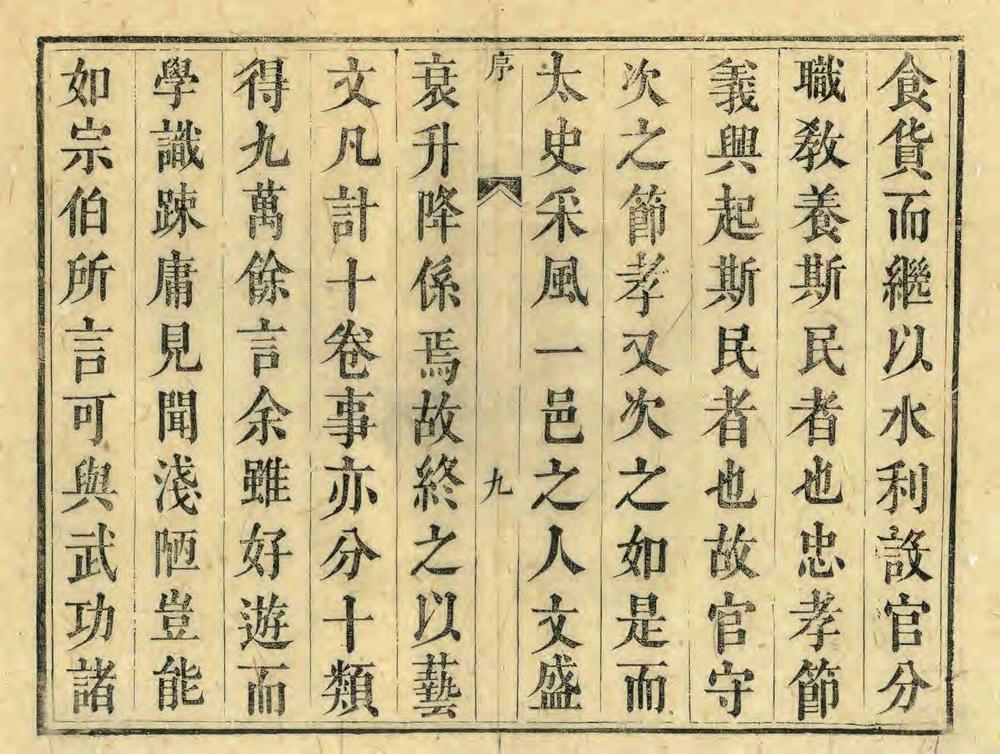 食貨而繼以水利設官分
職教養斯民者也忠孝節
義興起斯民者也故官守
次之節孝又次之如是而
太史采風一邑之人文盛
序
九
衰升降係焉故終之以藝
文凡計十卷事亦分十類
得九萬餘言余雖好遊而
學識踈庸見聞淺陋豈能
如宗伯所言可與武功諸